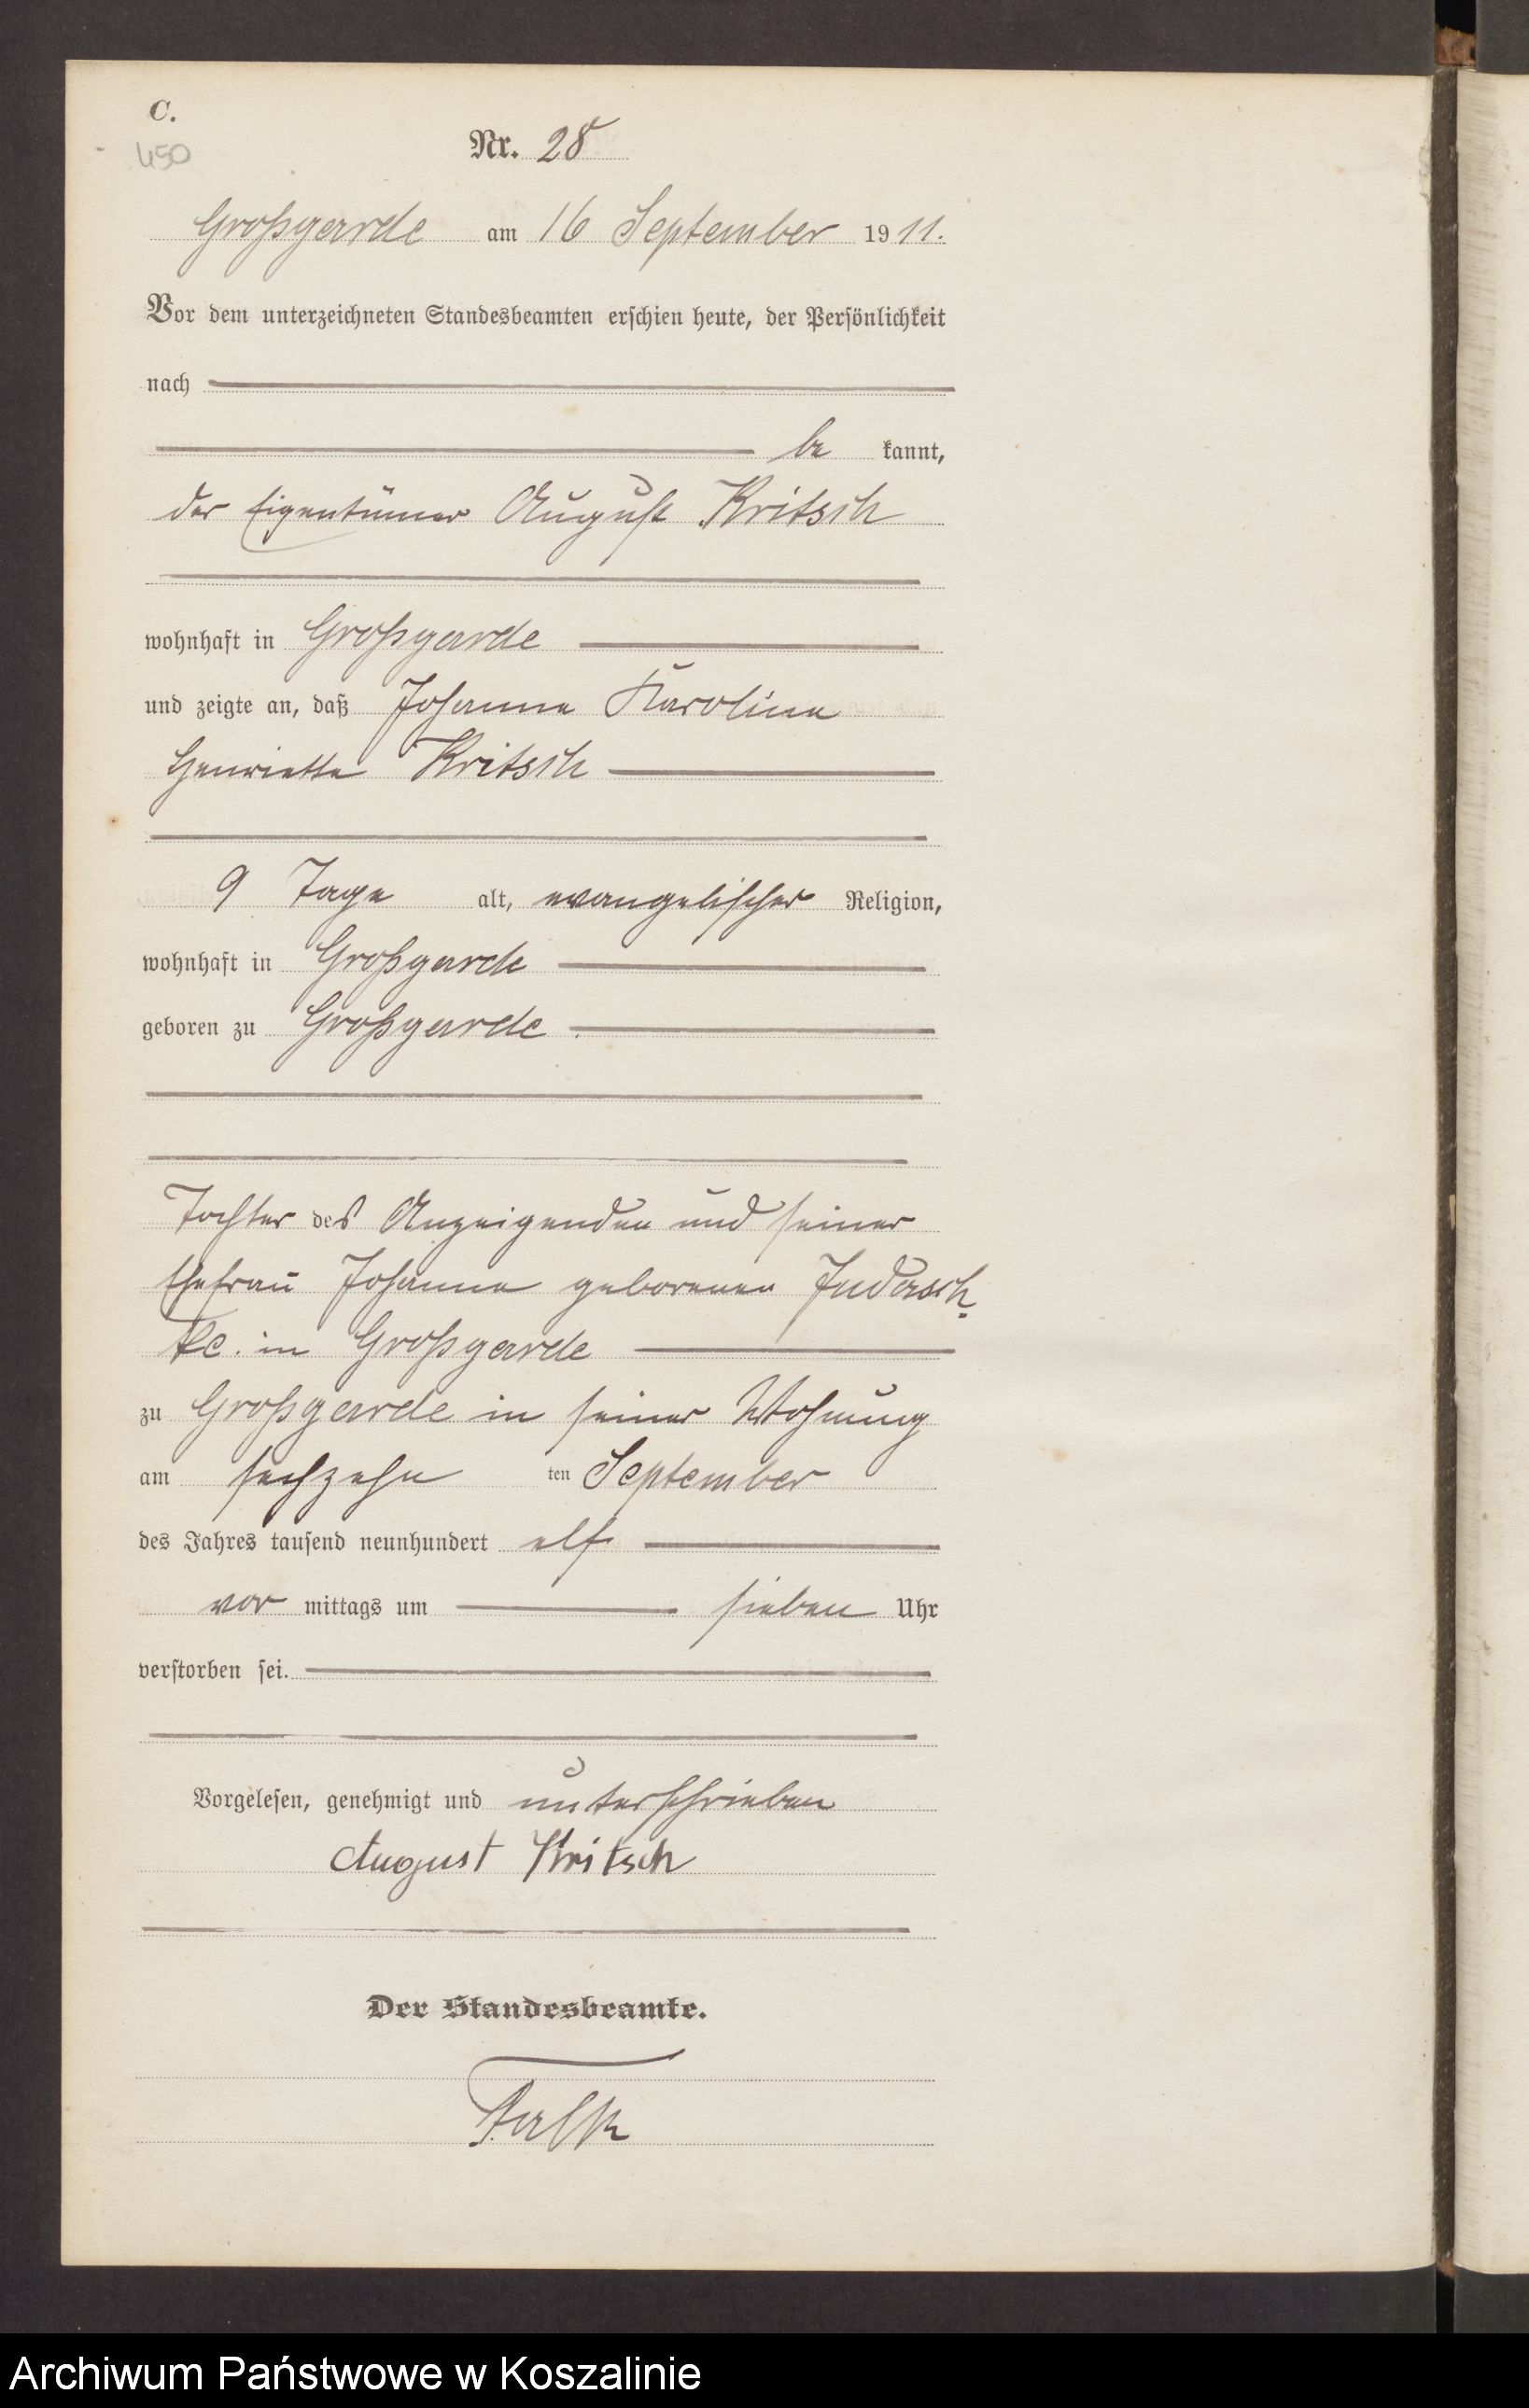 C.
450
Nr. 28
Großgarde am 16 September 1911.
Vor dem unterzeichneten Standesbeamten erschien heute, der Persönlichkeit
nach
be kannt,
der Eigentümer August Kritsch
wohnhaft in Großgarde
und zeigte an, daß Johanne Karoline
Henriette Kritsch
9 Tage alt, evangelischer Religion,
wohnhaft in Großgarde
geboren zu Großgarde
Tochter des Anzeigenden und seiner
Ehefrau Johanne geborenen Judasch-
ke in Großgarde
zu Großgarde in seiner Wohnung
am sechzehn ten September
des Jahres tausend neunhundert elf
vor mittags um sieben Uhr
verstorben sei.
Vorgelesen, genehmigt und unterschrieben
August Kritsch
Der Standesbeamte.
Falk
Archiwum Państwowe w Koszalinie